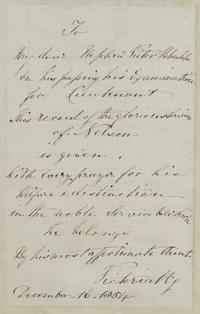 To
My dear Nephew Victor Hohenlohe
on his passing his Examination
for Lieutenant
this record of the glorious services
of Nelson
is given.
With every prayer for his
welfare & distinction
in the noble Service to which
he belongs
By his most affectionate Aunt
Victoria R
December 16 1854